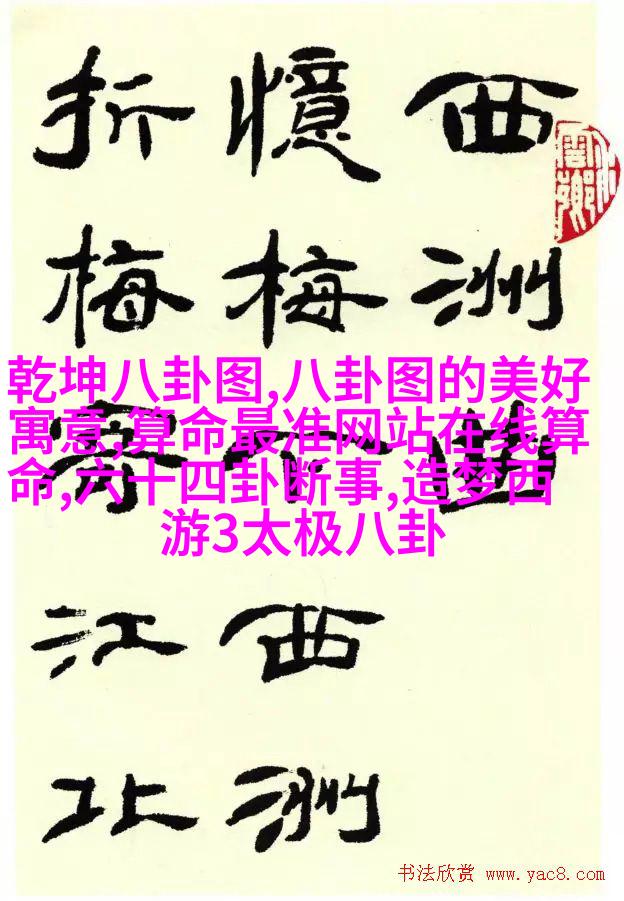 西洲曲
憶梅下西洲
折梅寄江北
乾坤八卦图,八卦图的美好
寓意,算命最准网站在线算
命,六十四卦断事,造梦西
游3太极八卦
书法欣赏 www.yac8.com